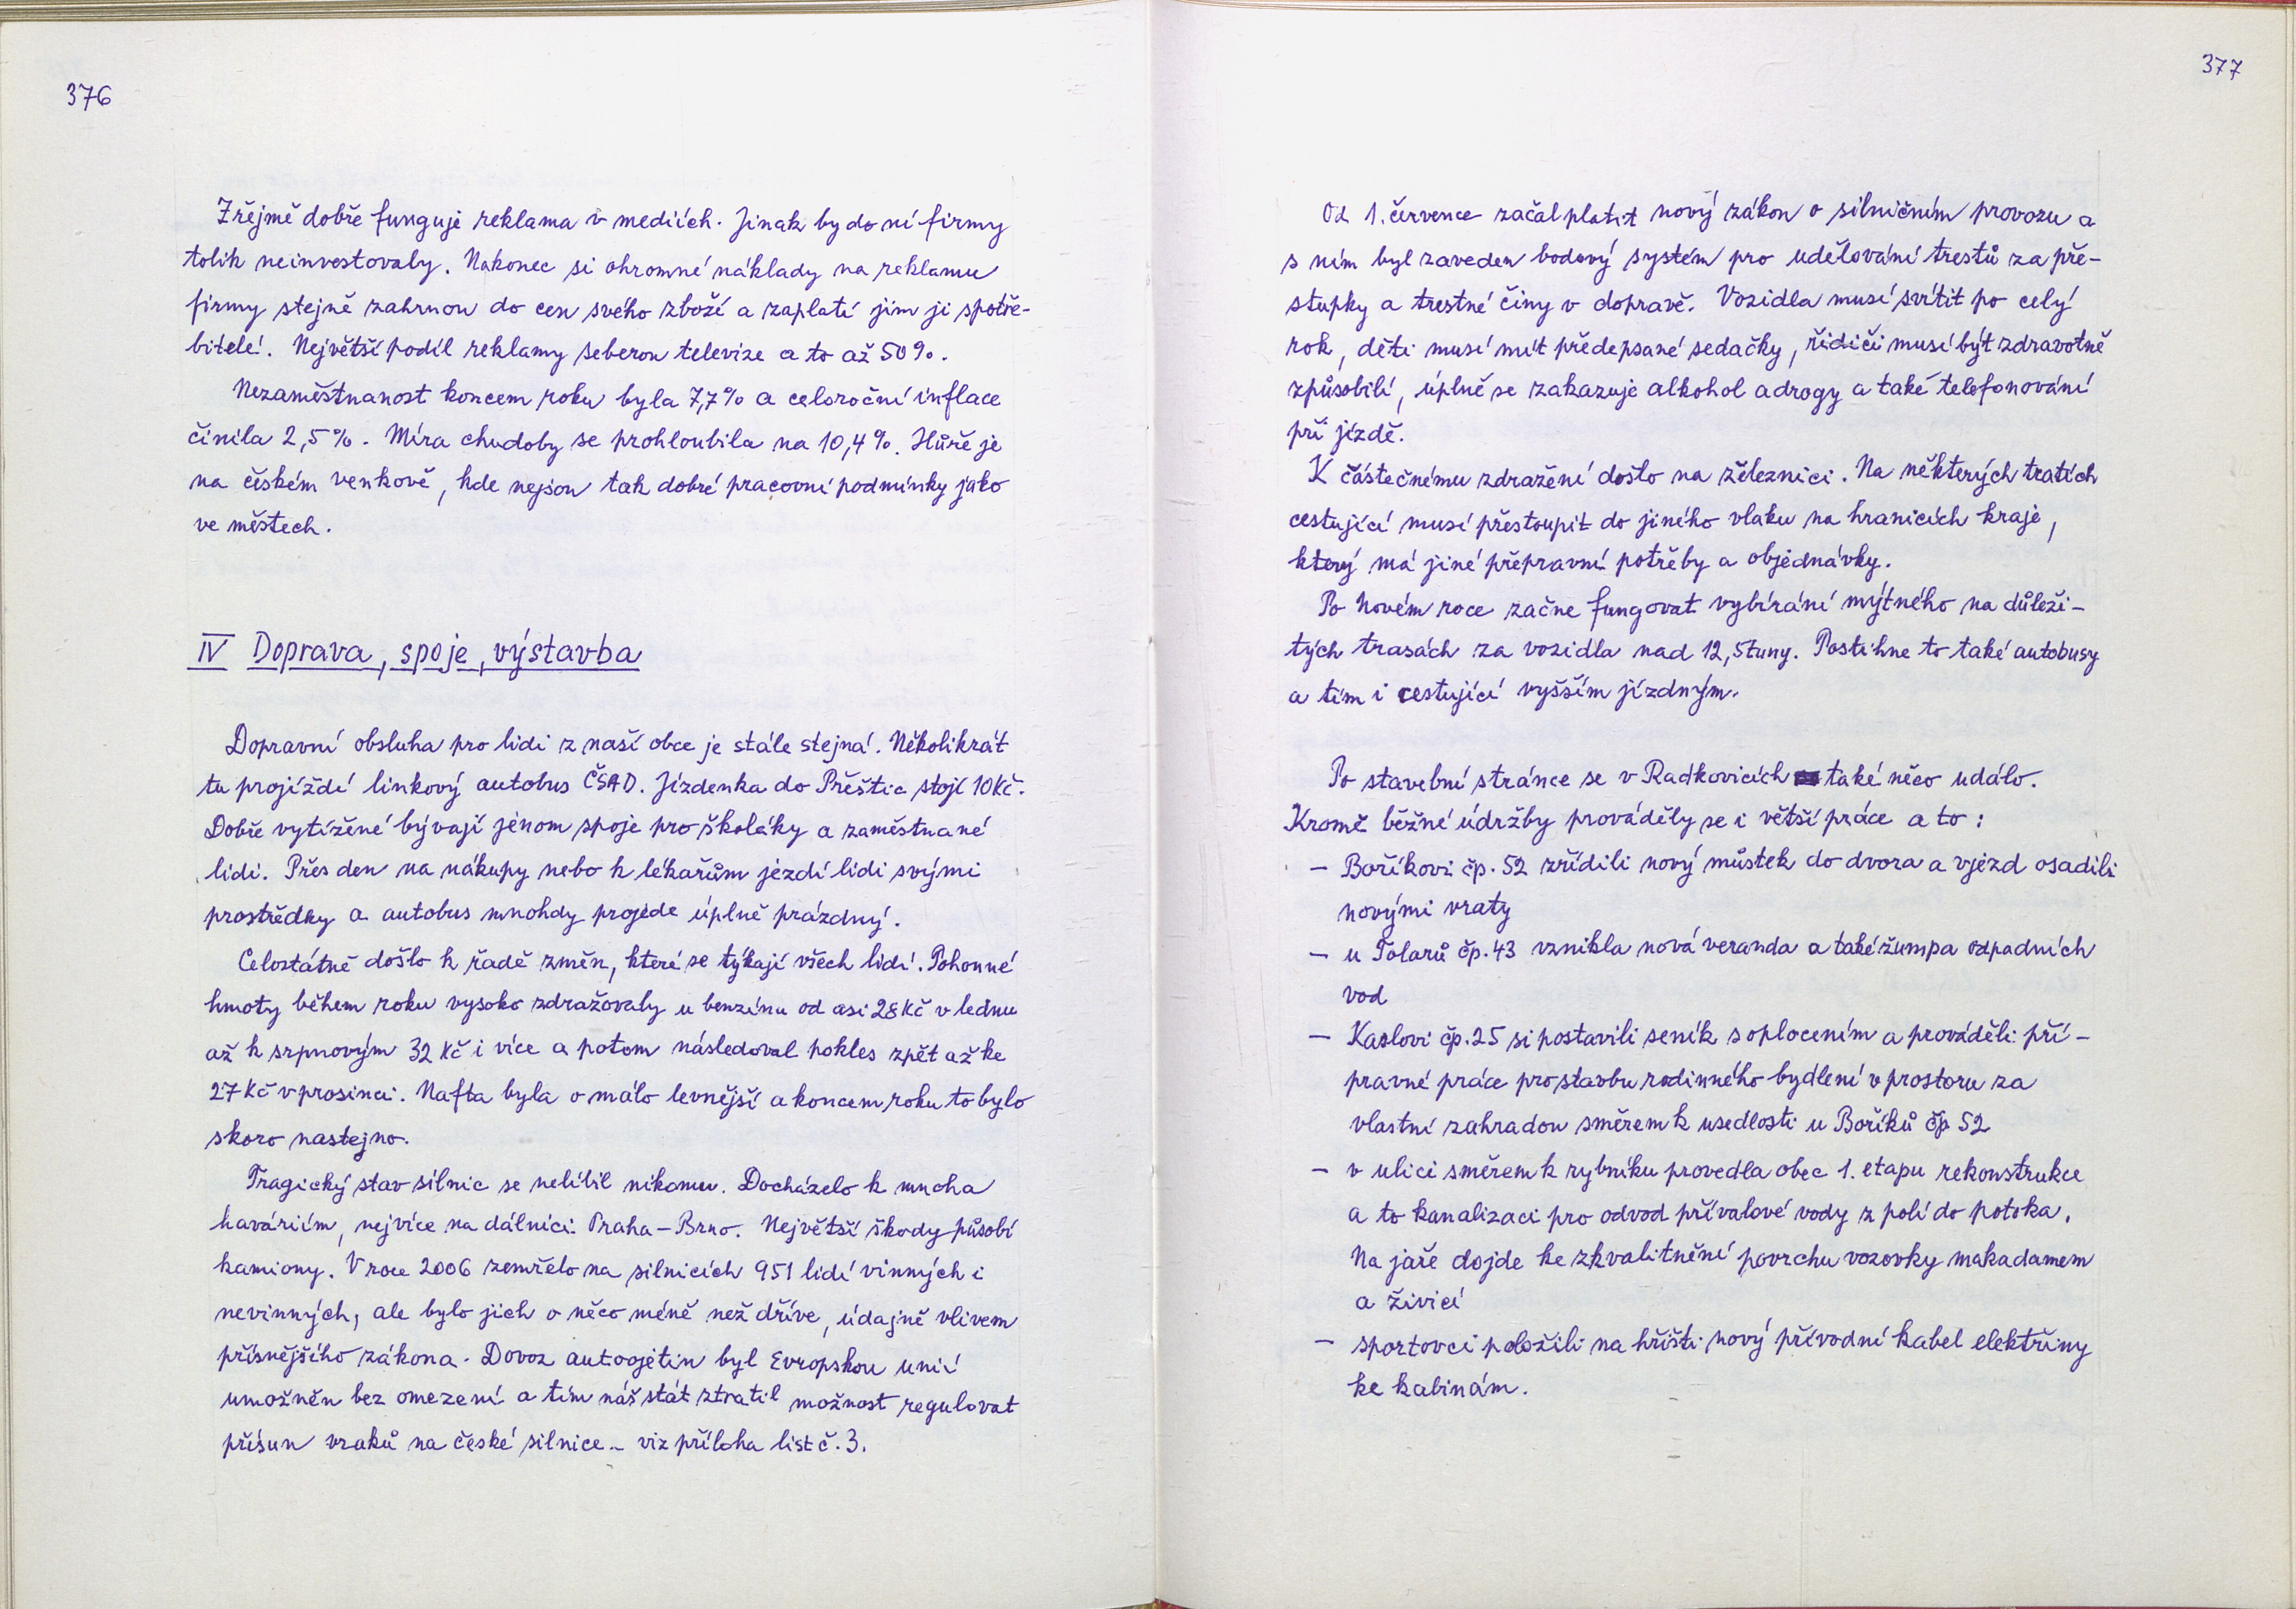 376
Zřejmě dobře funguje reklama v mediích. Jinak by do ní firmy
tolik neinvestovaly. Nakonec si ohromné náklady na reklamu
firmy stejně zahrnou do cen svého zboží a zaplatí jim ji spotře-
bitelé. Největší podíl reklamy seberou televize a to až 50%.
Nezaměstnanost koncem roku byla 7,7% a celoroční inflace
činila 2,5%. Míra chudoby se prohloubila na 10,4%. Hůře je
na českém venkově, kde nejsou tak dobré pracovní podmínky jako
ve městech.
IV Doprava, spoje, výstavba
Dopravní obsluha pro lidi z naší obce je stále stejná. Několikrát
tu projíždí linkový autobus ČSAD. Jízdenka do Přeštic stojí 10Kč.
Dobře vytížené bývají jenom spoje pro školáky a zaměstnané
lidi. Přes den na nákupy nebo k lékařům jezdí lidi svými
prostředky a autobus mnohdy projede úplně prázdný.
Celostátně došlo k řadě změn, které se týkají všech lidí. Pohonné
hmoty během roku vysoko zdražovaly u benzínu od asi 28Kč v lednu
až k srpnovým 32 Kč i více a potom následoval pokles zpět až ke
27Kč v prosinci. Nafta byla o málo levnější a koncem roku to bylo
skoro nastejno.
Tragický stav silnic se nelíbil nikomu. Docházelo k mnoha
haváriím, nejvíce na dálnici Praha-Brno. Největší škody působí
kamiony. V roce 2006 zemřelo na silnicích 951 lidí vinných i
nevinných, ale bylo jich o něco méně než dříve, údajně vlivem
přísnějšího zákona. Dovoz autoojetin byl Evropskou unií
umožněn bez omezení a tím náš stát ztratil možnost regulovat
přísun vraků na české silnice - viz příloha list č. 3.
377
Od 1. července začal platit nový zákon o silničním provozu a
s ním byl zaveden bodový systém pro udělování trestů za pře-
stupky a trestné činy v dopravě. Vozidla musí svítit po celý
rok, děti musí mít předepsané sedačky, řidiči musí být zdravotně
způsobilí, úplně se zakazuje alkohol a drogy a také telefonování
při jízdě.
K částečnému zdražení došlo na železnici. Na některých tratích
cestující musí přestoupit do jiného vlaku na hranicích kraje,
který má jiné přepravní potřeby a objednávky.
Po Novém roce začne fungovat vybírání mýtného na důleži-
tých trasách za vozidla nad 12,5tuny. Postihne to také autobusy
a tím i cestující vyšším jízdným.
Po stavební stránce se v Radkovicích také něco událo.
Kromě běžné údržby prováděly se i větší práce a to:
- Boříkovi čp. 52 zřídili nový můstek do dvora a vjezd osadili
novými vraty
- u Tolarů čp. 43 vznikla nová veranda a také žumpa odpadních
vod
- Kaslovi čp. 25 si postavili seník s oplocením a prováděli pří-
pravné práce pro stavbu rodinného bydlení v prostoru za
vlastní zahradou směrem k usedlosti u Boříků čp 52
- v ulici směrem k rybníku provedla obec 1. etapu rekonstrukce
a to kanalizaci pro odvod přívalové vody z polí do potoka.
Na jaře dojde ke zkvalitnění povrchu vozovky makadamem
a živicí
- sportovci položili na hřišti nový přívodní kabel elektřiny
ke kabinám.